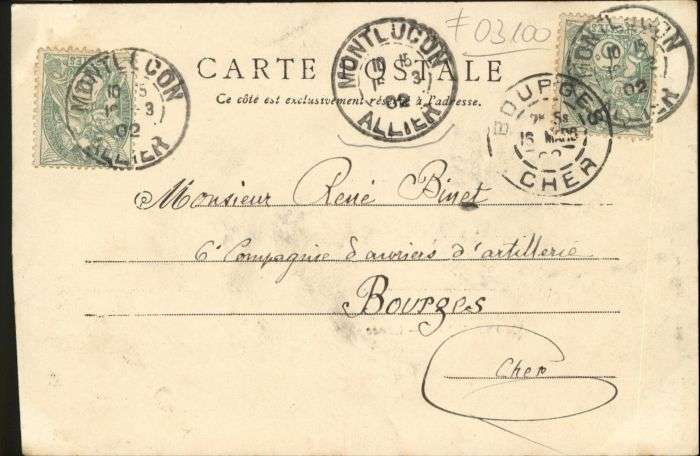 F 03100
CARTE POSTALE
Ce côté est exclusivement réservé à l'adresse.
MONTLUCON
16 15
3
02
ALLIER
MONTLUCON
10 15
3
02
ALLIER
MONTLUCON
10 15
02
ALLIER
BOURGES
16 MARS
02
CHER
Monsieur René Binet
6e Compagnie d'ouvriers d'artillerie
Bourges
Cher